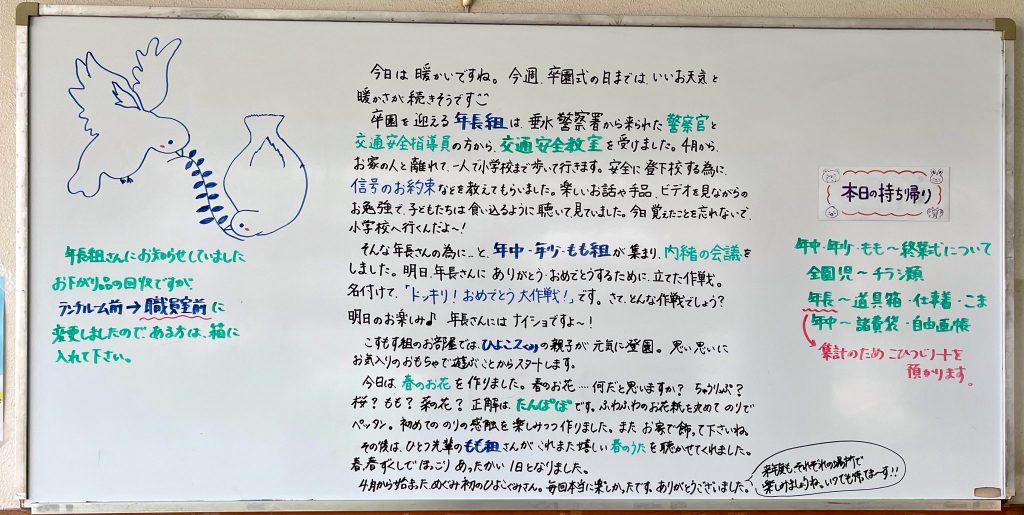 年長組さんにお知らせしていました
お下がり品の回収ですが、
ランチルーム前→職員室前に
変更しましたので、ある方は、箱に
入れて下さい。
今日は 暖かいですね。今週、卒園式の日までは、いいお天気と
暖かさが続きそうです
卒園を迎える年長組は、垂水警察署から来られた警察官と
交通安全指導員の方から、交通安全教室を受けました。4月から、
お家の人と離れて、一人で小学校まで歩いて行きます。安全に登下校する為に、
信号のお約束などを教えてもらいました。楽しいお話や手品、ビデオを見ながらの
お勉強で、子どもたちは食い込るように聴いて見ていました。今日覚えたことを忘れないで、
小学校へ行くんだよ〜!
そんな年長さんの為に…と、年中・年少・もも組が集まり、内緒の会議を
しました。明日、年長さんに ありがとう・おめでとうするために、立てた作戦。
名付けて、「ドッキリ!おめでとう大作戦!」です。さて、どんな作戦でしょう?
明日のお楽しみ♪ 年長さんには ナイショですよ〜!
こすもす組のお部屋では、ひよこ2くみの親子が元気に登園。思い思いに
お気入りのおもちゃで遊ぶことからスタートします。
今日は、春のお花を作りました。春のお花…何だと思いますか? ちゅうりっぷ?
桜?もも?菜の花? 正解は、たんぽぽです。ふわふわのお花紙を丸めて のりで
ペッタン。初めての のりの感触を楽しみつつ作りました。また お家で飾って下さいね。
その後は、ひとつ先輩のもも組さんが これまた嬉しい春のうたを聴かせてくれました。
春、春づくしで ほっこり あったかい1日となりました。
4月から始まっためぐみ初のひよこぐみさん。毎回本当に楽しかったです。ありがとうございました。
来年度も、それぞれの場所で
楽しみましょうね。いつでも待ってま〜す!!
本日の持ち帰り
年中・年少・もも〜終業式について
全園児〜チラシ類
年長〜道具箱・仕事着・こま
年中〜諸費袋・自由画帳
集計のため こひつじノートを
預かります。